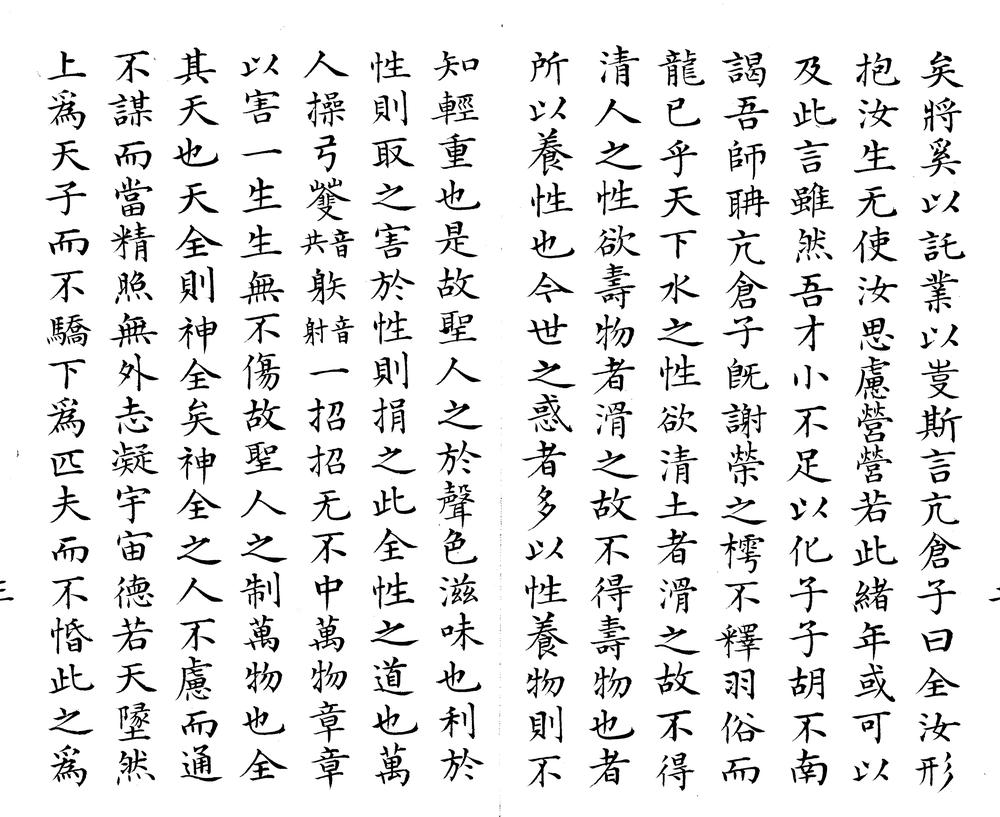 矣將奚以託業以斯言亢倉子曰全汝形
抱汝生无使汝思慮營營若此緒年或可以
及此言雖然吾才小不足以化子子胡不南
謁吾師聃亢倉子旣謝榮之樗不釋羽俗而
龍已乎天下水之性欲清土者滑之故不得
清人之性欲壽物者滑之故不得壽物也者
所以養性也今世之惑者多以性養物則不
知輕重也是故聖人之於聲色滋味也利於
性則取之害於性則捐之此全性之道也萬
人操弓音共䠶音射一招招无不中萬物章章
以害一生生無不傷故聖人之制萬物也全
其天也天全則神全矣神全之人不慮而通
不謀而當精照無外志凝宇宙德若天墬然
上爲天子而不驕下爲匹夫而不惛此之爲